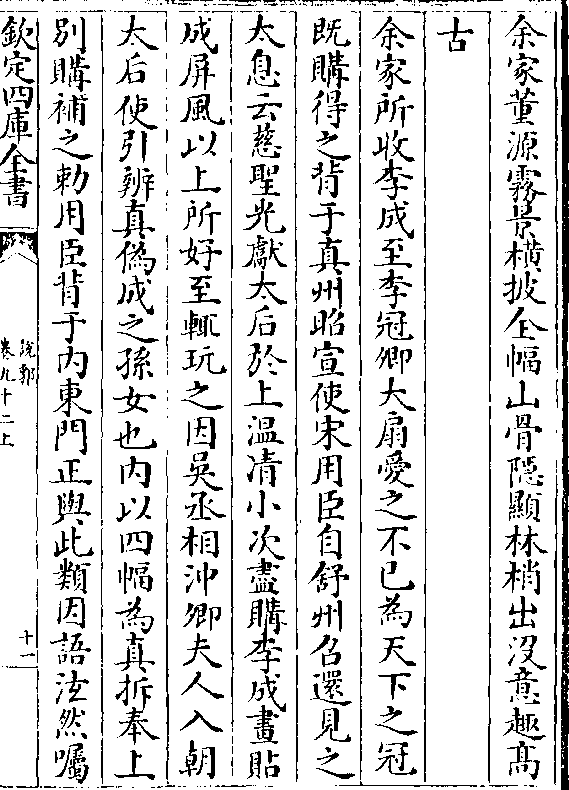 余家董源霧景横披全幅山骨隠顯林梢出沒意趣髙
古
余家所收李成至李冠卿大扇愛之不已為天下之冠
既購得之背于真州昭宣使宋用臣自舒州召還見之
太息云慈聖光獻太后於上温凊小次盡購李成畫貼
成屏風以上所好至輒玩之因吳丞相沖卿夫人入朝
太后使引辨真偽成之孫女也内以四幅為真拆奉上
别購補之勅用臣背于内東門正與此類因語泫然囑
欽定四庫全書
説郛
卷九十二上
十一